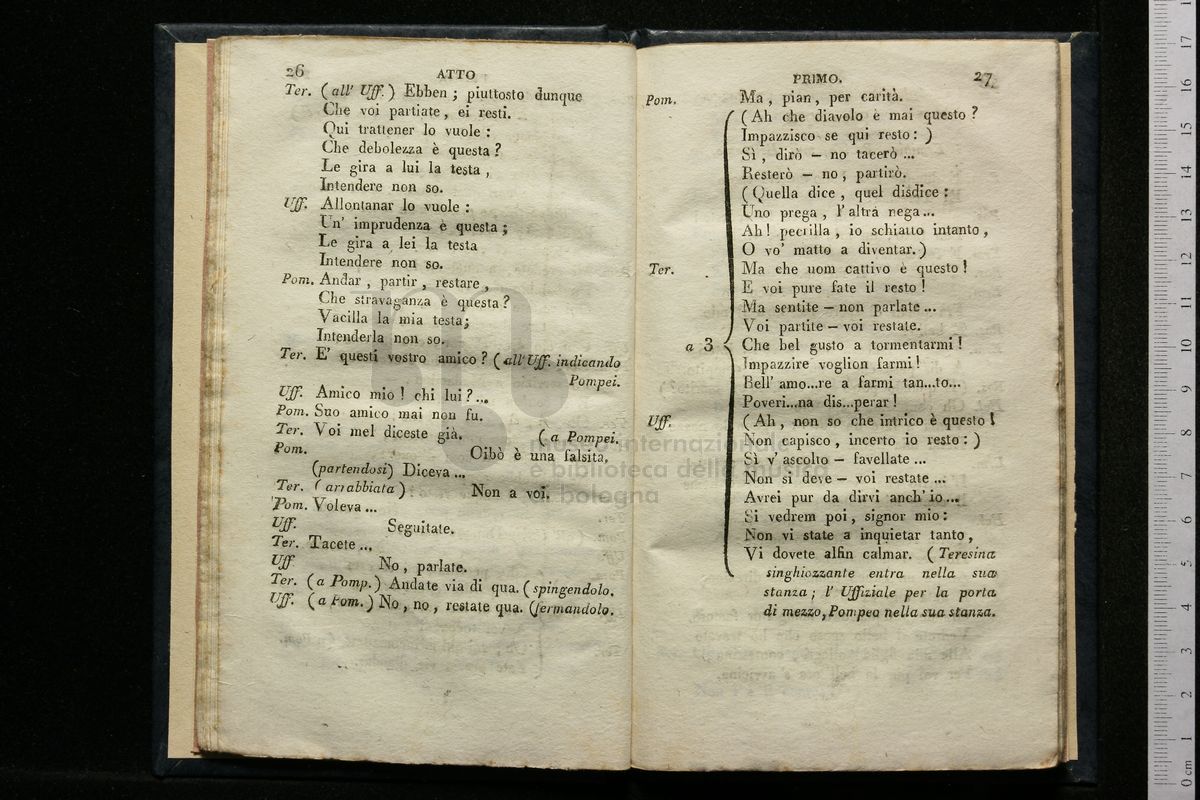 26
ATTO
Ter. (all' Uff.) Ebben; piuttosto dunque
Che voi partiate, ei resti.
Qui trattener lo vuole:
Che debolezza è questa?
Le gira a lui la testa,
Intendere non so.
Uff. Allontanar lo vuole:
Un' imprudenza è questa;
Le gira a lei la testa
Intendere non so.
Pom. Andar, partir, restare,
Che stravaganza è questa?
Vacilla la mia testa;
Intenderla non so.
Ter. E' questi vostro amico? (all' Uff. indicando
Pompei.
Uff. Amico mio! chi lui?...
Pom. Suo amico mai non fu.
Ter. Voi mel diceste già. (a Pompei.
Pom. Oibò è una falsità.
(partendosi) Diceva ...
Ter. (arrabbiata) Non a voi.
Pom. Voleva ...
Uff. Seguitate.
Ter. Tacete ...
Uff No, parlate.
Ter. (a Pomp.) Andate via di qua. (spingendolo.
Uff. (a Pom.) No, no, restate qua. (fermandolo.
PRIMO.
27
Pom. Ma, pian, per carità.
(Ah che diavolo è mai questo?
Impazzisco se qui resto: )
Sì, dirò — no tacerò ...
Resterò — no, partirò.
(Quella dice, quel disdice:
Uno prega, l'altra nega...
Ah! pecrilla, io schiatto intanto,
O vo' matto a diventar.)
Ter. Ma che uom cattivo è questo!
E voi pure fate il resto!
Ma sentite — non parlate ...
Voi partite — voi restate.
a 3 Che bel gusto a tormentarmi!
Impazzire voglion farmi!
Bell' amo...re a farmi tan...to...
Poveri...na dis...perar!
Uff. (Ah, non so che intrico è questo!
Non capisco, incerto io resto: )
Sì v' ascolto — favellate ...
Non si deve — voi restate ...
Avrei pur da dirvi anch' io ...
Si vedrem poi, signor mio:
Non vi state a inquietar tanto,
Vi dovete alfin calmar. (Teresina
singhiozzante entra nella sua
stanza; l' Uffiziale per la porta
di mezzo, Pompeo nella sua stanza.
museo internazionale
e biblioteca della musica
di bologna
0 cm 1 2 3 4 5 6 7 8 9 10 11 12 13 14 15 16 17